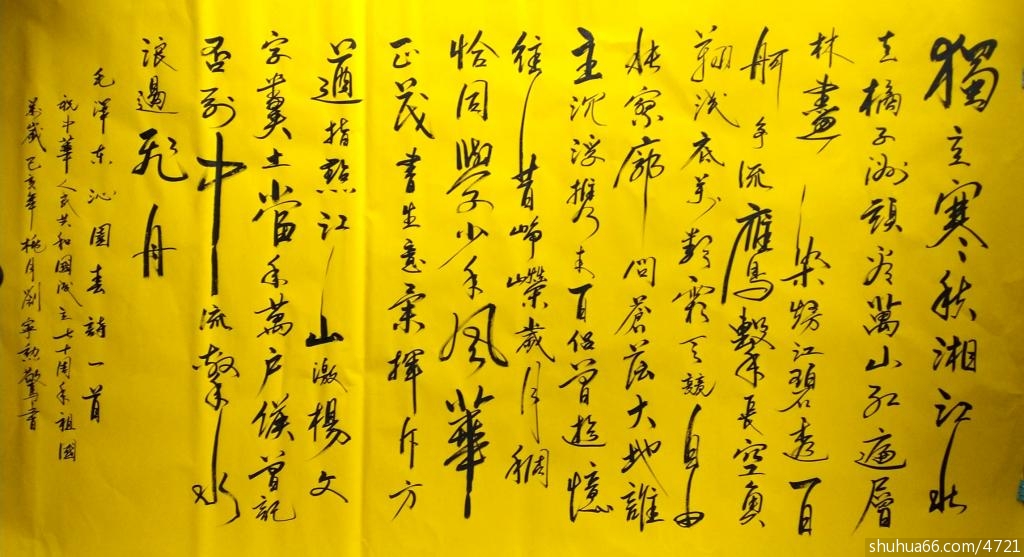 獨立寒秋湘江北
去橘子洲頭看萬山紅遍層
林盡染江碧透百
舸争流鷹擊長空魚
翔浅底萬類霜天競自由
怅寥廓問蒼茫大地誰
主沉浮攜来百侣曾遊憶
往昔崢嶸歲月稠
恰同學少年風華
正茂書生意氣揮斥方
遒指點江山激揚文
字糞土當年萬户侯曾記
否到中流擊水
浪遏飛舟
毛澤东沁園春詩一首
祝中華人民共和國成立七十周年祖國
萬歲己亥年桃月劉寧勲書
shuhua66.com/4721